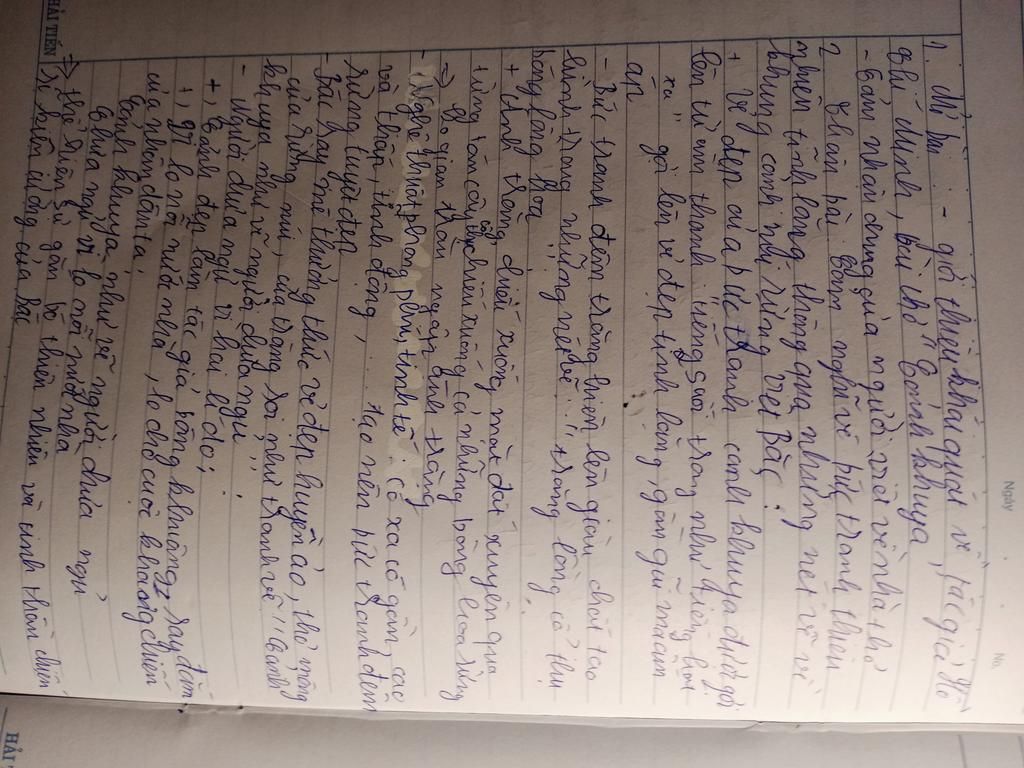 Ngày
No.
1. Mở bài : - giới thiệu khái quát về tác giả Hồ
Chí Minh, bài thơ "Cảnh khuya"
- Cảm nhận chung của người viết về nhà thơ
2 Thân bài Cảm nghĩ về bức tranh thiên
nhiên tĩnh lặng thông qua những nét vẽ về
khung cảnh núi rừng Việt Bắc
+ Vẻ đẹp của bức tranh cảnh khuya được gợi
lên từ âm thanh "tiếng suối trong như tiếng hát
xa" gợi lên vẻ đẹp tĩnh lặng, gần gũi mà ấm
áp
- Bức tranh đêm trăng hiện lên giàu chất tạo
hình trong những nét vẽ "trăng lồng cổ thụ
bóng lồng hoa
+ Ánh trăng chiếu xuống mặt đất xuyên qua
từng tán cây, chiếu xuống cả những bông hoa rừng
=> không gian tràn ngập ánh trăng
- Nghệ thuật phong phú, tinh tế có xa có gần, cao
và thấp, tĩnh động, ... tạo nên bức tranh đêm
rừng tuyệt đẹp
- Bác say mê thưởng thức vẻ đẹp huyền ảo, thơ mộng
của rừng núi, của trăng soi, như tranh vẽ "Cảnh
khuya như vẽ người chưa ngủ"
- Người chưa ngủ vì hai lí do:
+, Cảnh đẹp làm tác giả bâng khuâng, say đắm
+, vì lo nỗi nước nhà, lo cho cuộc kháng chiến
của nhân dân ta.
Cảnh khuya như vẽ người chưa ngủ
Chưa ngủ vì lo nỗi nước nhà
=> thể hiện sự gắn bó thiên nhiên và tinh thần chiến
sĩ kiên cường của Bác
HẢI TIẾN
HẢI